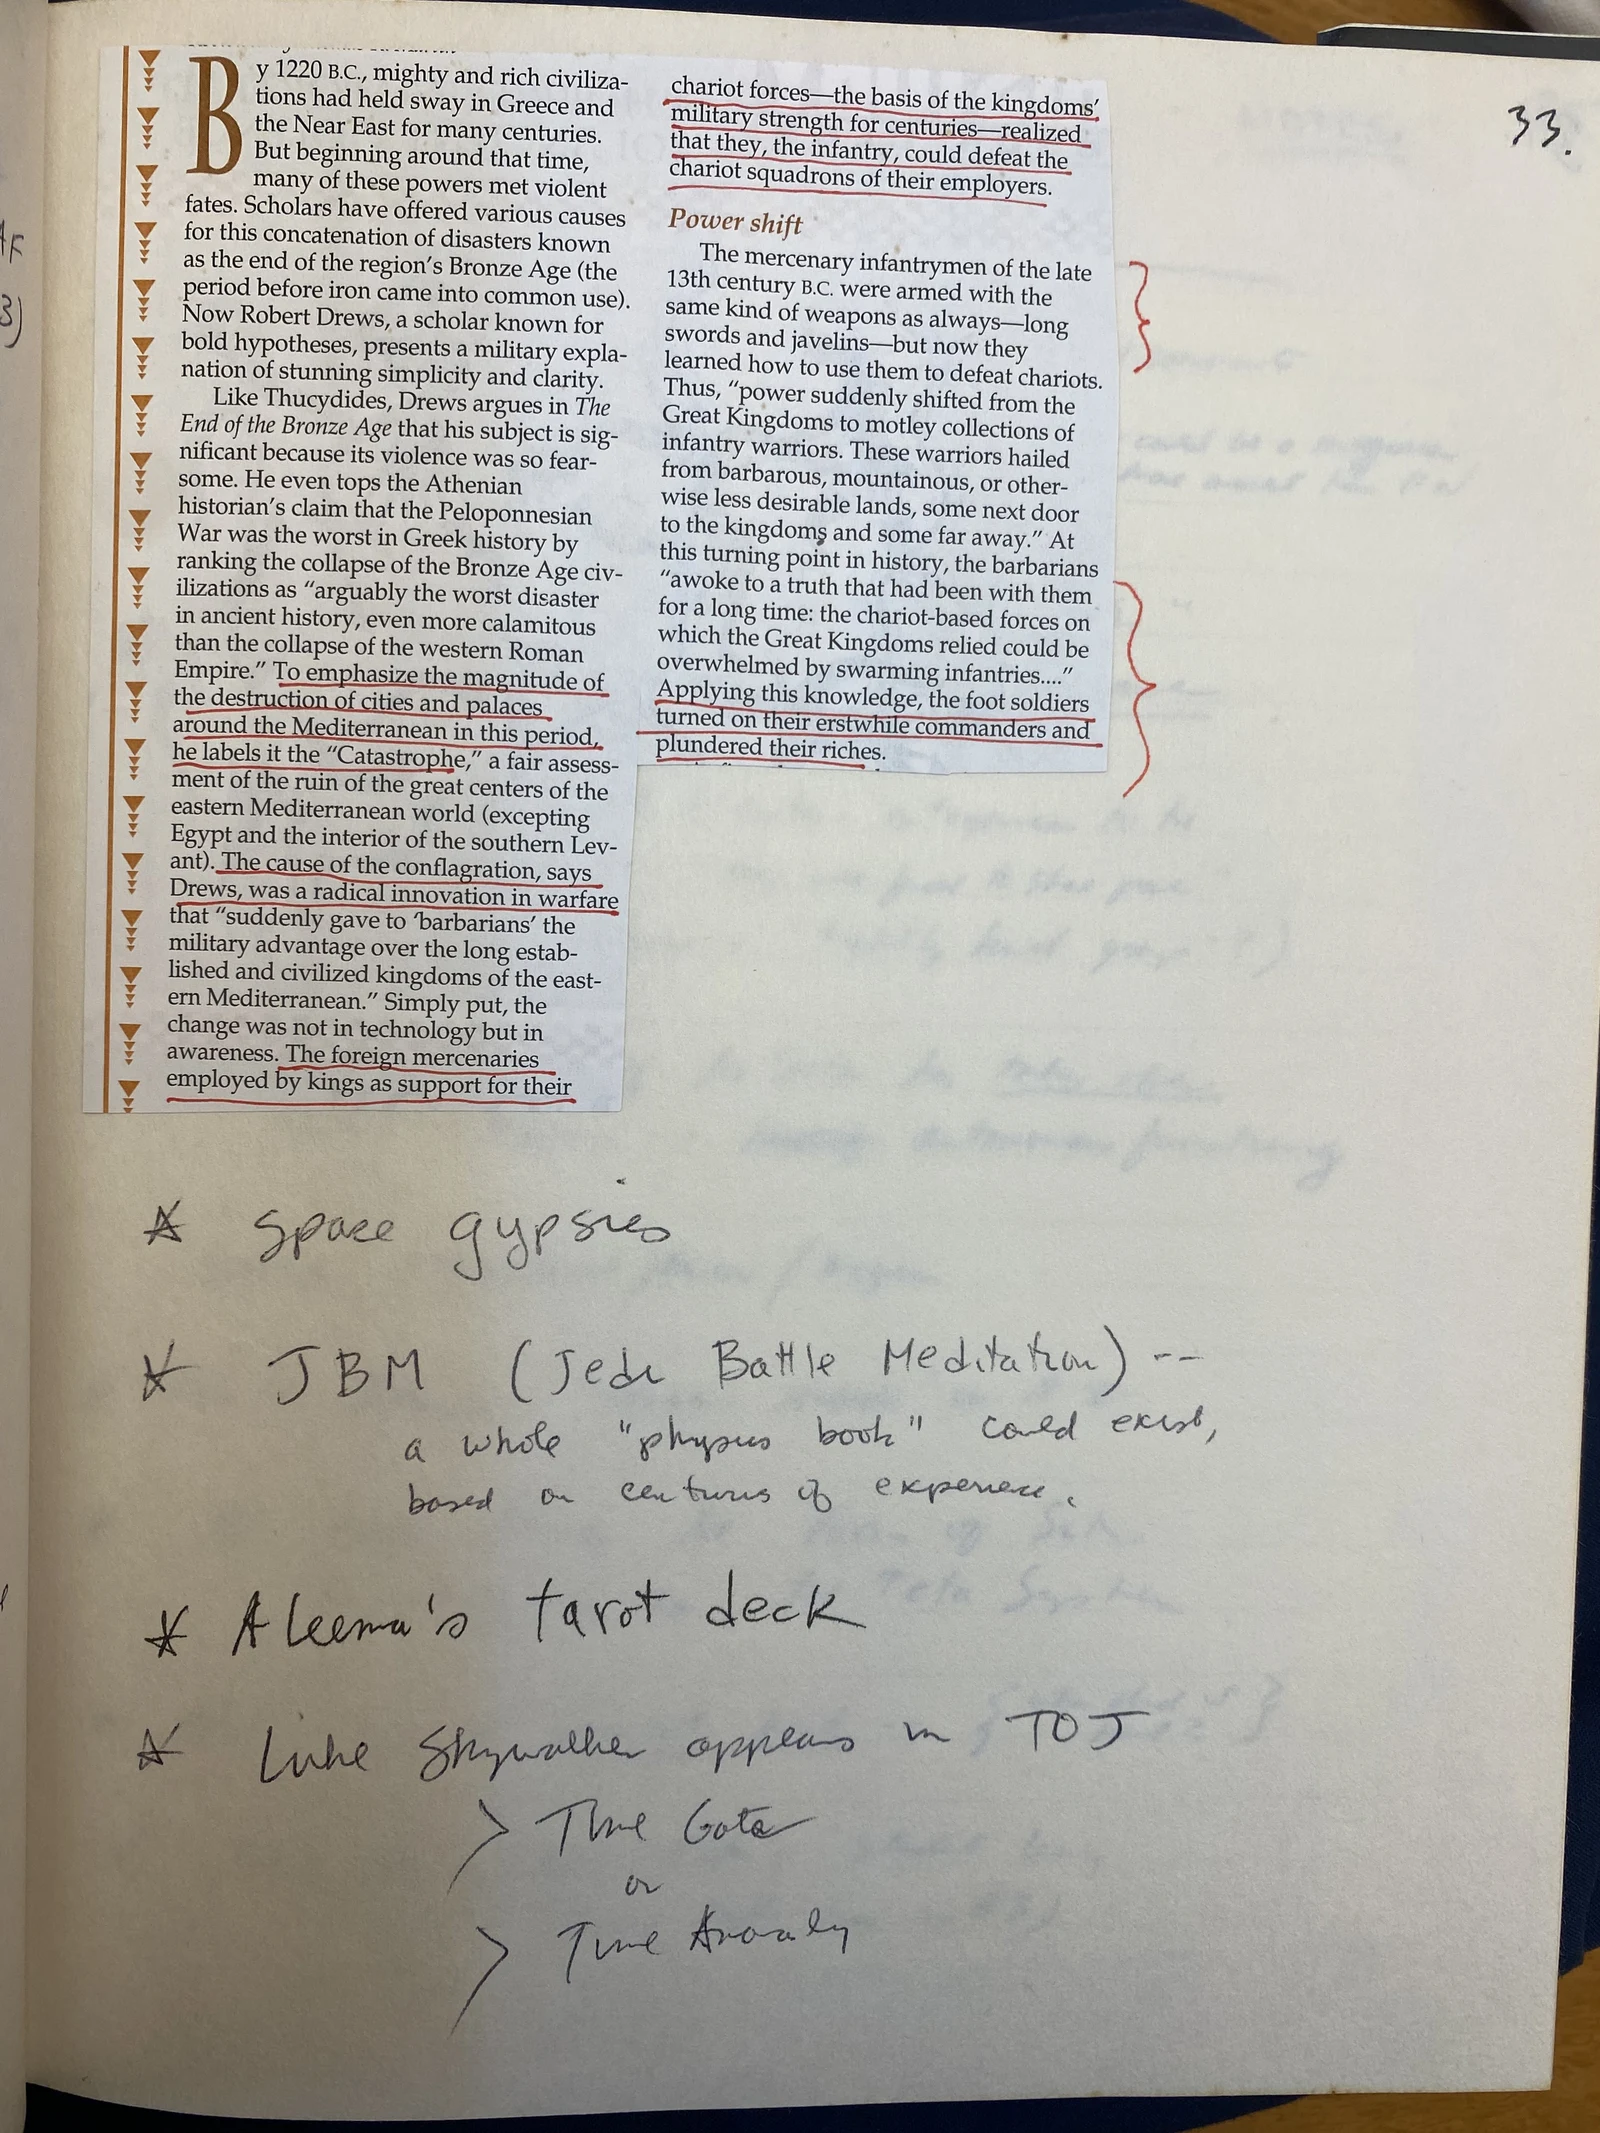 By 1220 B.C., mighty and rich civiliza-
tions had held sway in Greece and
the Near East for many centuries.
But beginning around that time,
many of these powers met violent
fates. Scholars have offered various causes
for this concatenation of disasters known
as the end of the region's Bronze Age (the
period before iron came into common use).
Now Robert Drews, a scholar known for
bold hypotheses, presents a military expla-
nation of stunning simplicity and clarity.
Like Thucydides, Drews argues in The
End of the Bronze Age that his subject is sig-
nificant because its violence was so fear-
some. He even tops the Athenian
historian's claim that the Peloponnesian
War was the worst in Greek history by
ranking the collapse of the Bronze Age civ-
ilizations as “arguably the worst disaster
in ancient history, even more calamitous
than the collapse of the western Roman
Empire.” To emphasize the magnitude of
the destruction of cities and palaces
around the Mediterranean in this period,
he labels it the “Catastrophe,” a fair assess-
ment of the ruin of the great centers of the
eastern Mediterranean world (excepting
Egypt and the interior of the southern Lev-
ant). The cause of the conflagration, says
Drews, was a radical innovation in warfare
that “suddenly gave to ‘barbarians’ the
military advantage over the long estab-
lished and civilized kingdoms of the east-
ern Mediterranean.” Simply put, the
change was not in technology but in
awareness. The foreign mercenaries
employed by kings as support for their
chariot forces—the basis of the kingdoms'
military strength for centuries—realized
that they, the infantry, could defeat the
chariot squadrons of their employers.
Power shift
The mercenary infantrymen of the late
13th century B.C. were armed with the
same kind of weapons as always—long
swords and javelins—but now they
learned how to use them to defeat chariots.
Thus, “power suddenly shifted from the
Great Kingdoms to motley collections of
infantry warriors. These warriors hailed
from barbarous, mountainous, or other-
wise less desirable lands, some next door
to the kingdoms and some far away.” At
this turning point in history, the barbarians
“awoke to a truth that had been with them
for a long time: the chariot-based forces on
which the Great Kingdoms relied could be
overwhelmed by swarming infantries....”
Applying this knowledge, the foot soldiers
turned on their erstwhile commanders and
plundered their riches.
33.
* Space gypsies
* JBM (Jedi Battle Meditation) --
a whole "physics book" could exist,
based on centuries of experience.
* Aleema's tarot deck
* Luke Skywalker appears in TOJ
> Time Gate
or
> Time Anomaly